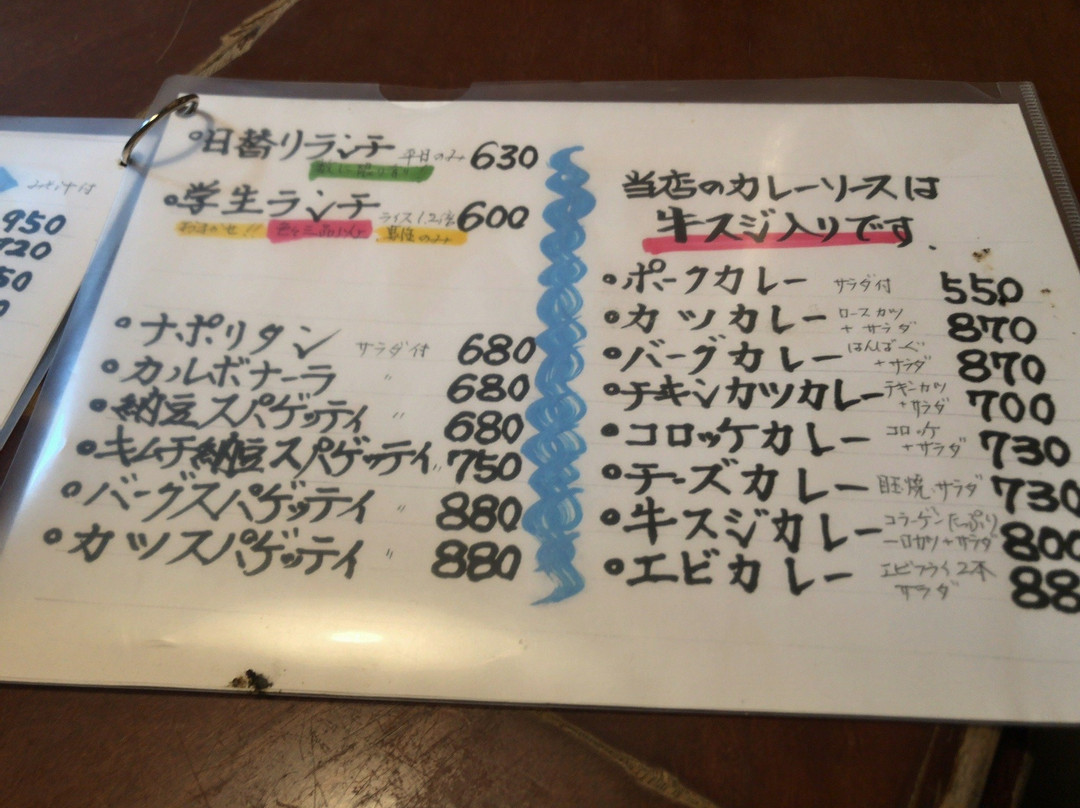 ミニサラダ付
950
720
50
0
•日替りランチ 平日のみ 630
•学生ランチ ライス1.2倍 600
おまかせ!!
•ナポリタン サラダ付 680
•カルボナーラ 〃 680
•納豆スパゲッティ 〃 680
•キムチ納豆スパゲッティ 〃 750
•バーグスパゲッティ 〃 880
•カツスパゲッティ 〃 880
当店のカレーソースは
牛スジ入りです.
•ポークカレー サラダ付 550
•カツカレー ロースカツ+サラダ 870
•バーグカレー はんばーぐ+サラダ 870
•チキンカツカレー チキンカツ+サラダ 700
•コロッケカレー コロッケ+サラダ 730
•チーズカレー 目玉焼.サラダ 730
•牛スジカレー コラーゲンたっぷり 一口カツ+サラダ 800
•エビカレー エビフライ2本 サラダ 88